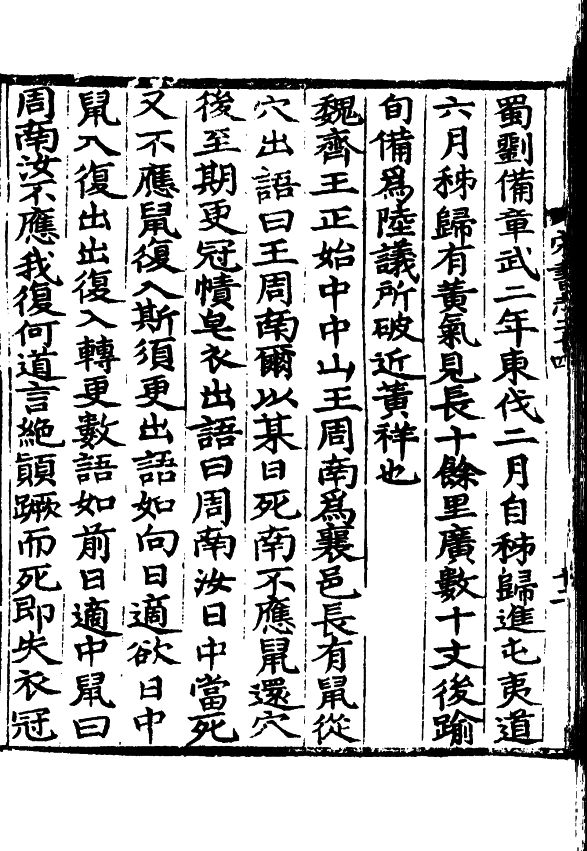 蜀劉備章武二年東伐二月自秭歸進屯夷道
六月秭歸有黃氣見長十餘里廣數十丈後踰
旬備爲陸議所破近黃祥也
魏齊王正始中中山王周南爲襄邑長有鼠從
穴出語曰王周南爾以某日死南不應鼠還穴
後至期更冠幘皂衣出語曰周南汝日中當死
又不應鼠復入斯須更出語如向日適欲日中
鼠入復出出復入轉更數語如前日適中鼠曰
周南汝不應我復何道言絶顚蹶而死即失衣冠